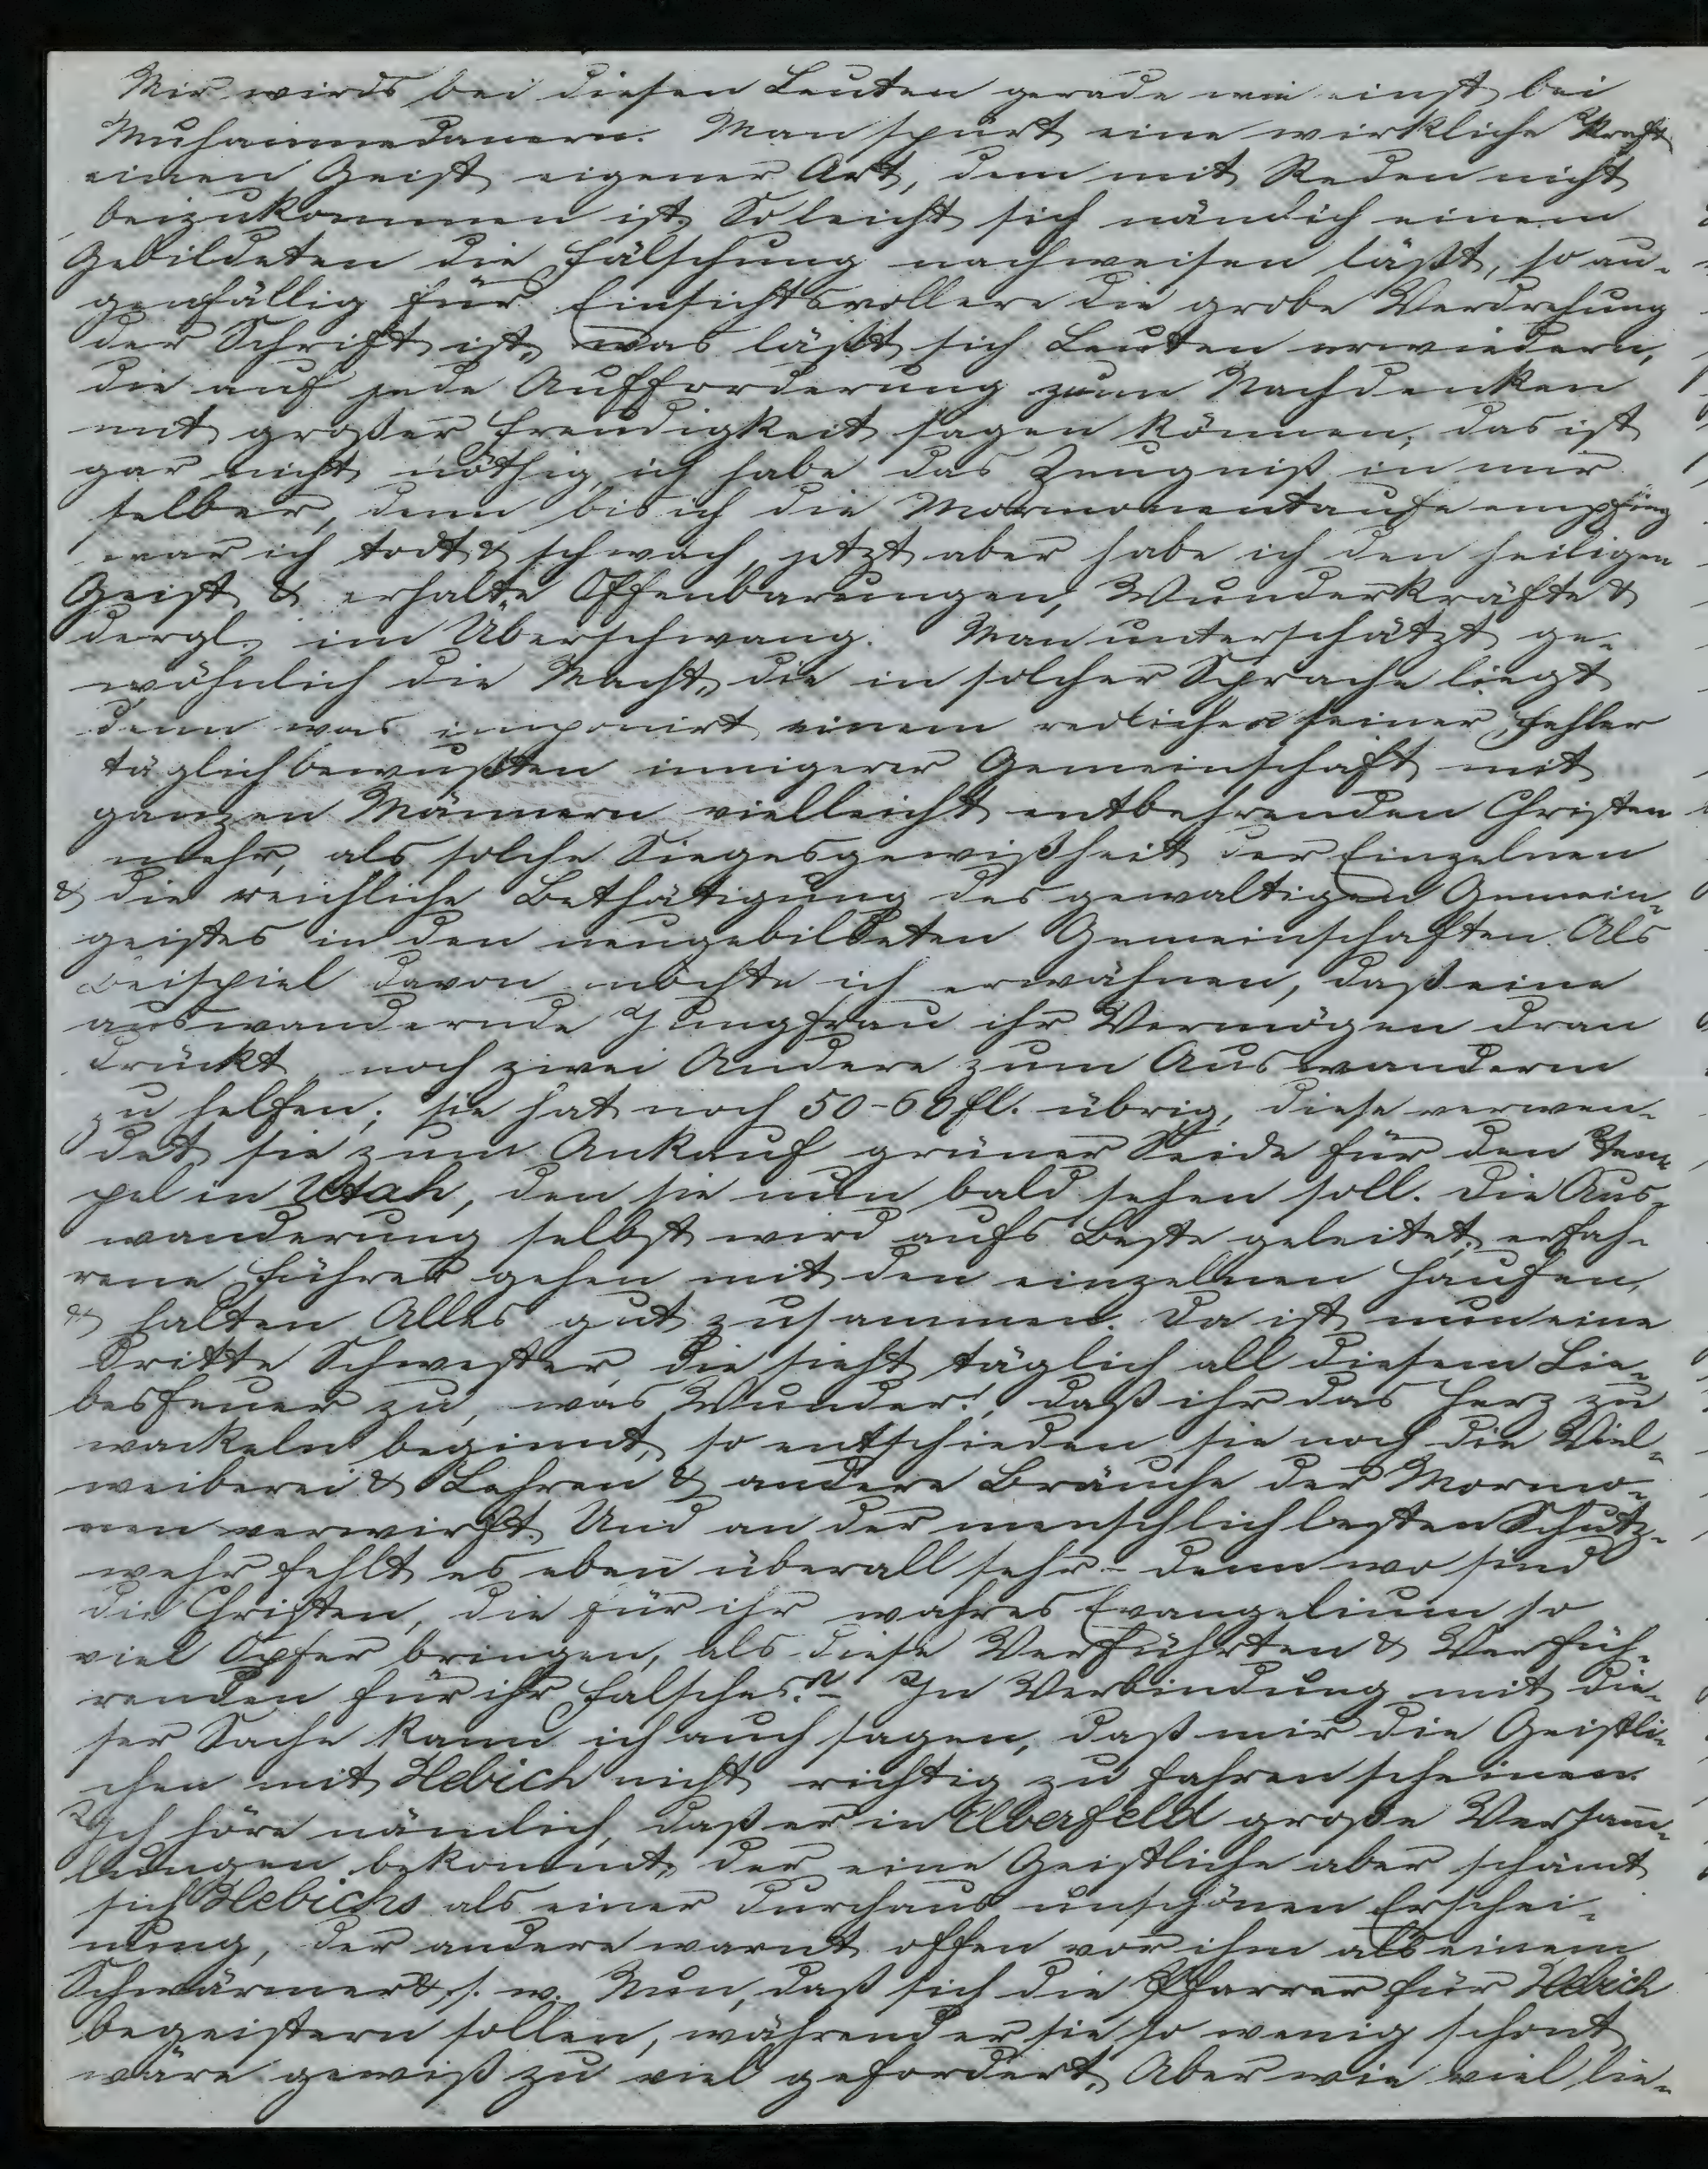 Mir wirds bei diesen Leuten gerade wie einst bei
Muhammedanern. Man spürt eine wirkliche Kraft
einen Geist eigener Art, dem mit Reden nicht
beizukommen ist. So leicht sich nämlich einem
Gebildeten die Fälschung nachweisen läßt, so au-
genfällig für Einsichtsvollere die grobe Verdrehung
der Schrift ist, was läßt sich Leuten erwiedern,
die auf jede Aufforderung zum Nachdenken
mit großer Freudigkeit sagen können; das ist
gar nicht nöthig, ich habe das Zeugniß in mir
selber, denn bis ich die Mormonentaufe empfing
war ich todt & schwach, jetzt aber habe ich den heiligen
Geist & erhalte Offenbarungen, Wunderkräfte &
dergl. im Überschwang. Man unterschätzt ge-
wöhnlich die Macht, die in solcher Sprache liegt
denn was imponirt einem redlichen seiner Fehler
täglich bewußten innigerer Gemeinschaft mit
ganzen Männern vielleicht entbehrenden Christen
mehr, als solche Siegesgewißheit der Einzelnen
& die reichliche Bethätigung des gewaltigen Gemein-
geistes in den neugebildeten Gemeinschaften. Als
Beispiel davon möchte ich erwähnen, daß eine
auswandernde Jungfrau ihr Vermögen dran
drückt, noch zwei Andere zum Auswandern
zu helfen; sie hat noch 50-60 fl. übrig, diese verwen-
det sie zum Ankauf grüner Seide für den Tem-
pel in Utah, den sie nun bald sehen soll. Die Aus-
wanderung selbst wird aufs Beste geleitet; erfah-
rene Führer gehen mit den einzelnen Haufen,
& halten Alles gut zusammen. Da ist nun eine
dritte Schwester, die sieht täglich all diesem Lie-
besfeuer zu, was Wunder!, daß ihr das Herz zu
wackeln beginnt, so entschieden sie noch die Viel-
weiberei & Lehren & andere Bräuche der Mormo-
nen verwirft. Und an der menschlich besten Schutz-
wehr fehlt es eben überall sehr - denn wo sind
die Christen, die für ihr wahres Evangelium so
viel Opfer bringen, als diese Verführten & Verfüh-
renden für ihr falsches? - In Verbindung mit die-
ser Sache kann ich auch sagen, daß mir die Geistli-
chen mit Hebich nicht richtig zu fahren scheinen.
Ich höre nämlich, daß er in Elberfeld große Versam̄-
lungen bekommt, der eine Geistliche aber schämt
sich Hebichs als einer durchaus unschönen Erschei-
nung, der andere warnt offen vor ihm als einem
Schwärmer &. s. w. Nun, daß sich die Pfarrer für Hebich
begeistern sollen, während er sie so wenig schont
wäre gewiß zu viel gefordert. Aber wie viel lie-